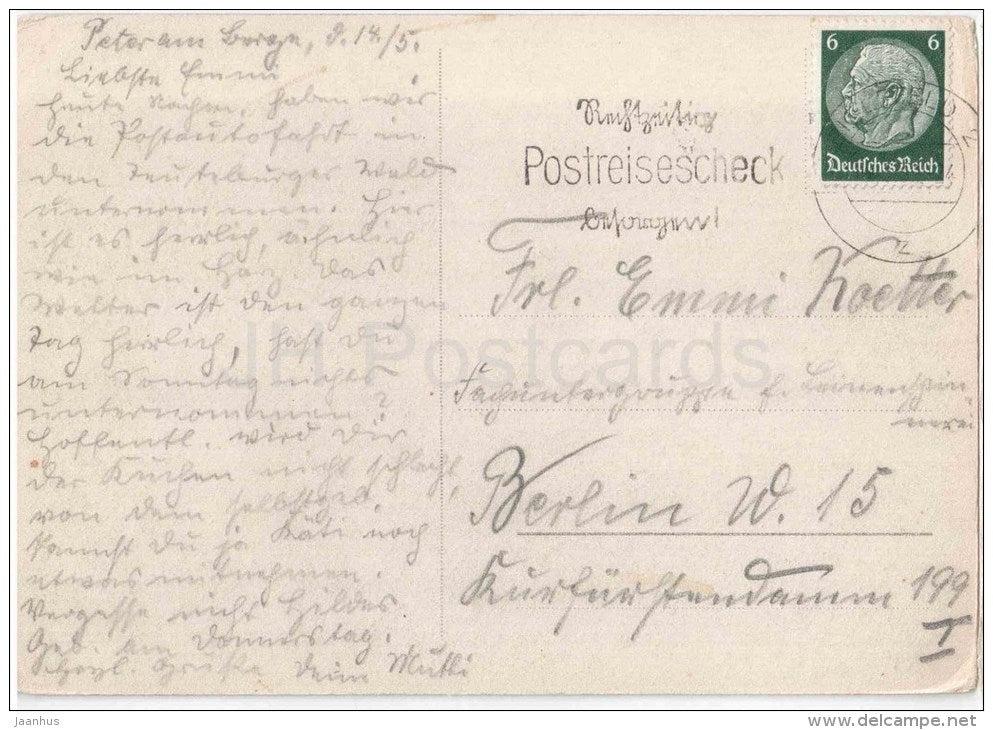 Peter am Berge, d. 14/5.
Liebste Emmi
Heute Nachm. haben wir
die Postautofahrt in
den Teuteburger Wald
unternommen. Hier
ist es herrlich, ähnlich
wie im Harz. Das
Wetter ist den ganzen
Tag herrlich, hast Du
am Sonntag nichts
unternommen?
Hoffentl. wird Dir
der Kuchen nicht schlecht,
von dem selbstgeb.
kannst Du ja Käti noch
etwas mitnehmen.
Vergesse nicht Hildes
Geb. am Donnerstag.
Herzl. Grüße Dein Mutti
6 6
Deutsches Reich
Rechtzeitig
Postreisescheck
besorgen!
Frl. Emmi Koetter
Fachuntergruppe f. Leinenspin
nerei
Berlin W. 15
Kurfürstendamm 199
I
IH Postcards
jaanhus
www.delcampe.net